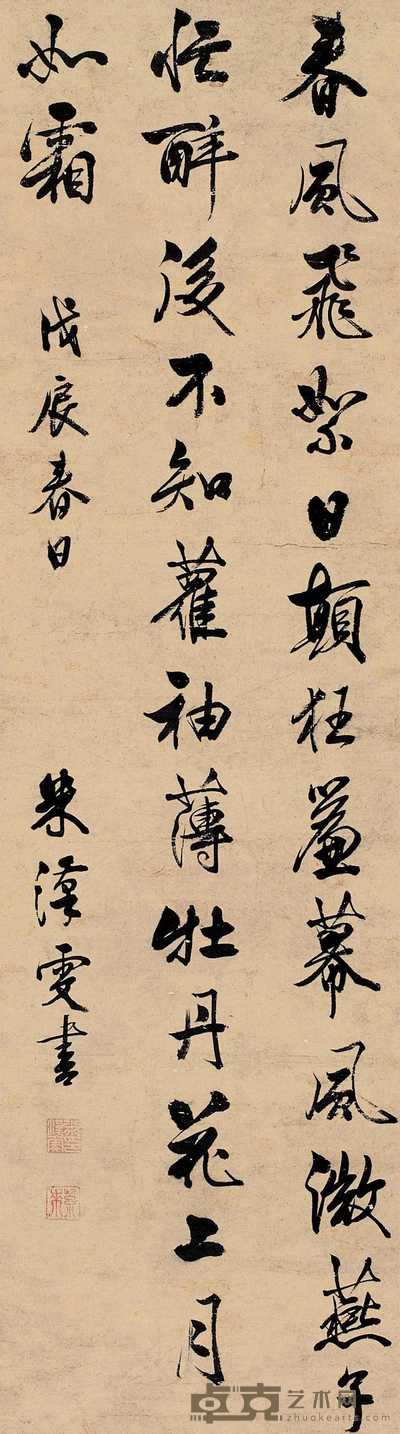 春風飛絮日顛狂簾幕風微燕子
忙醉後不知袖薄牡丹花上月
如霜 戊辰春日 朱漢雯書
卓克艺术网
www.zhuokearts.com